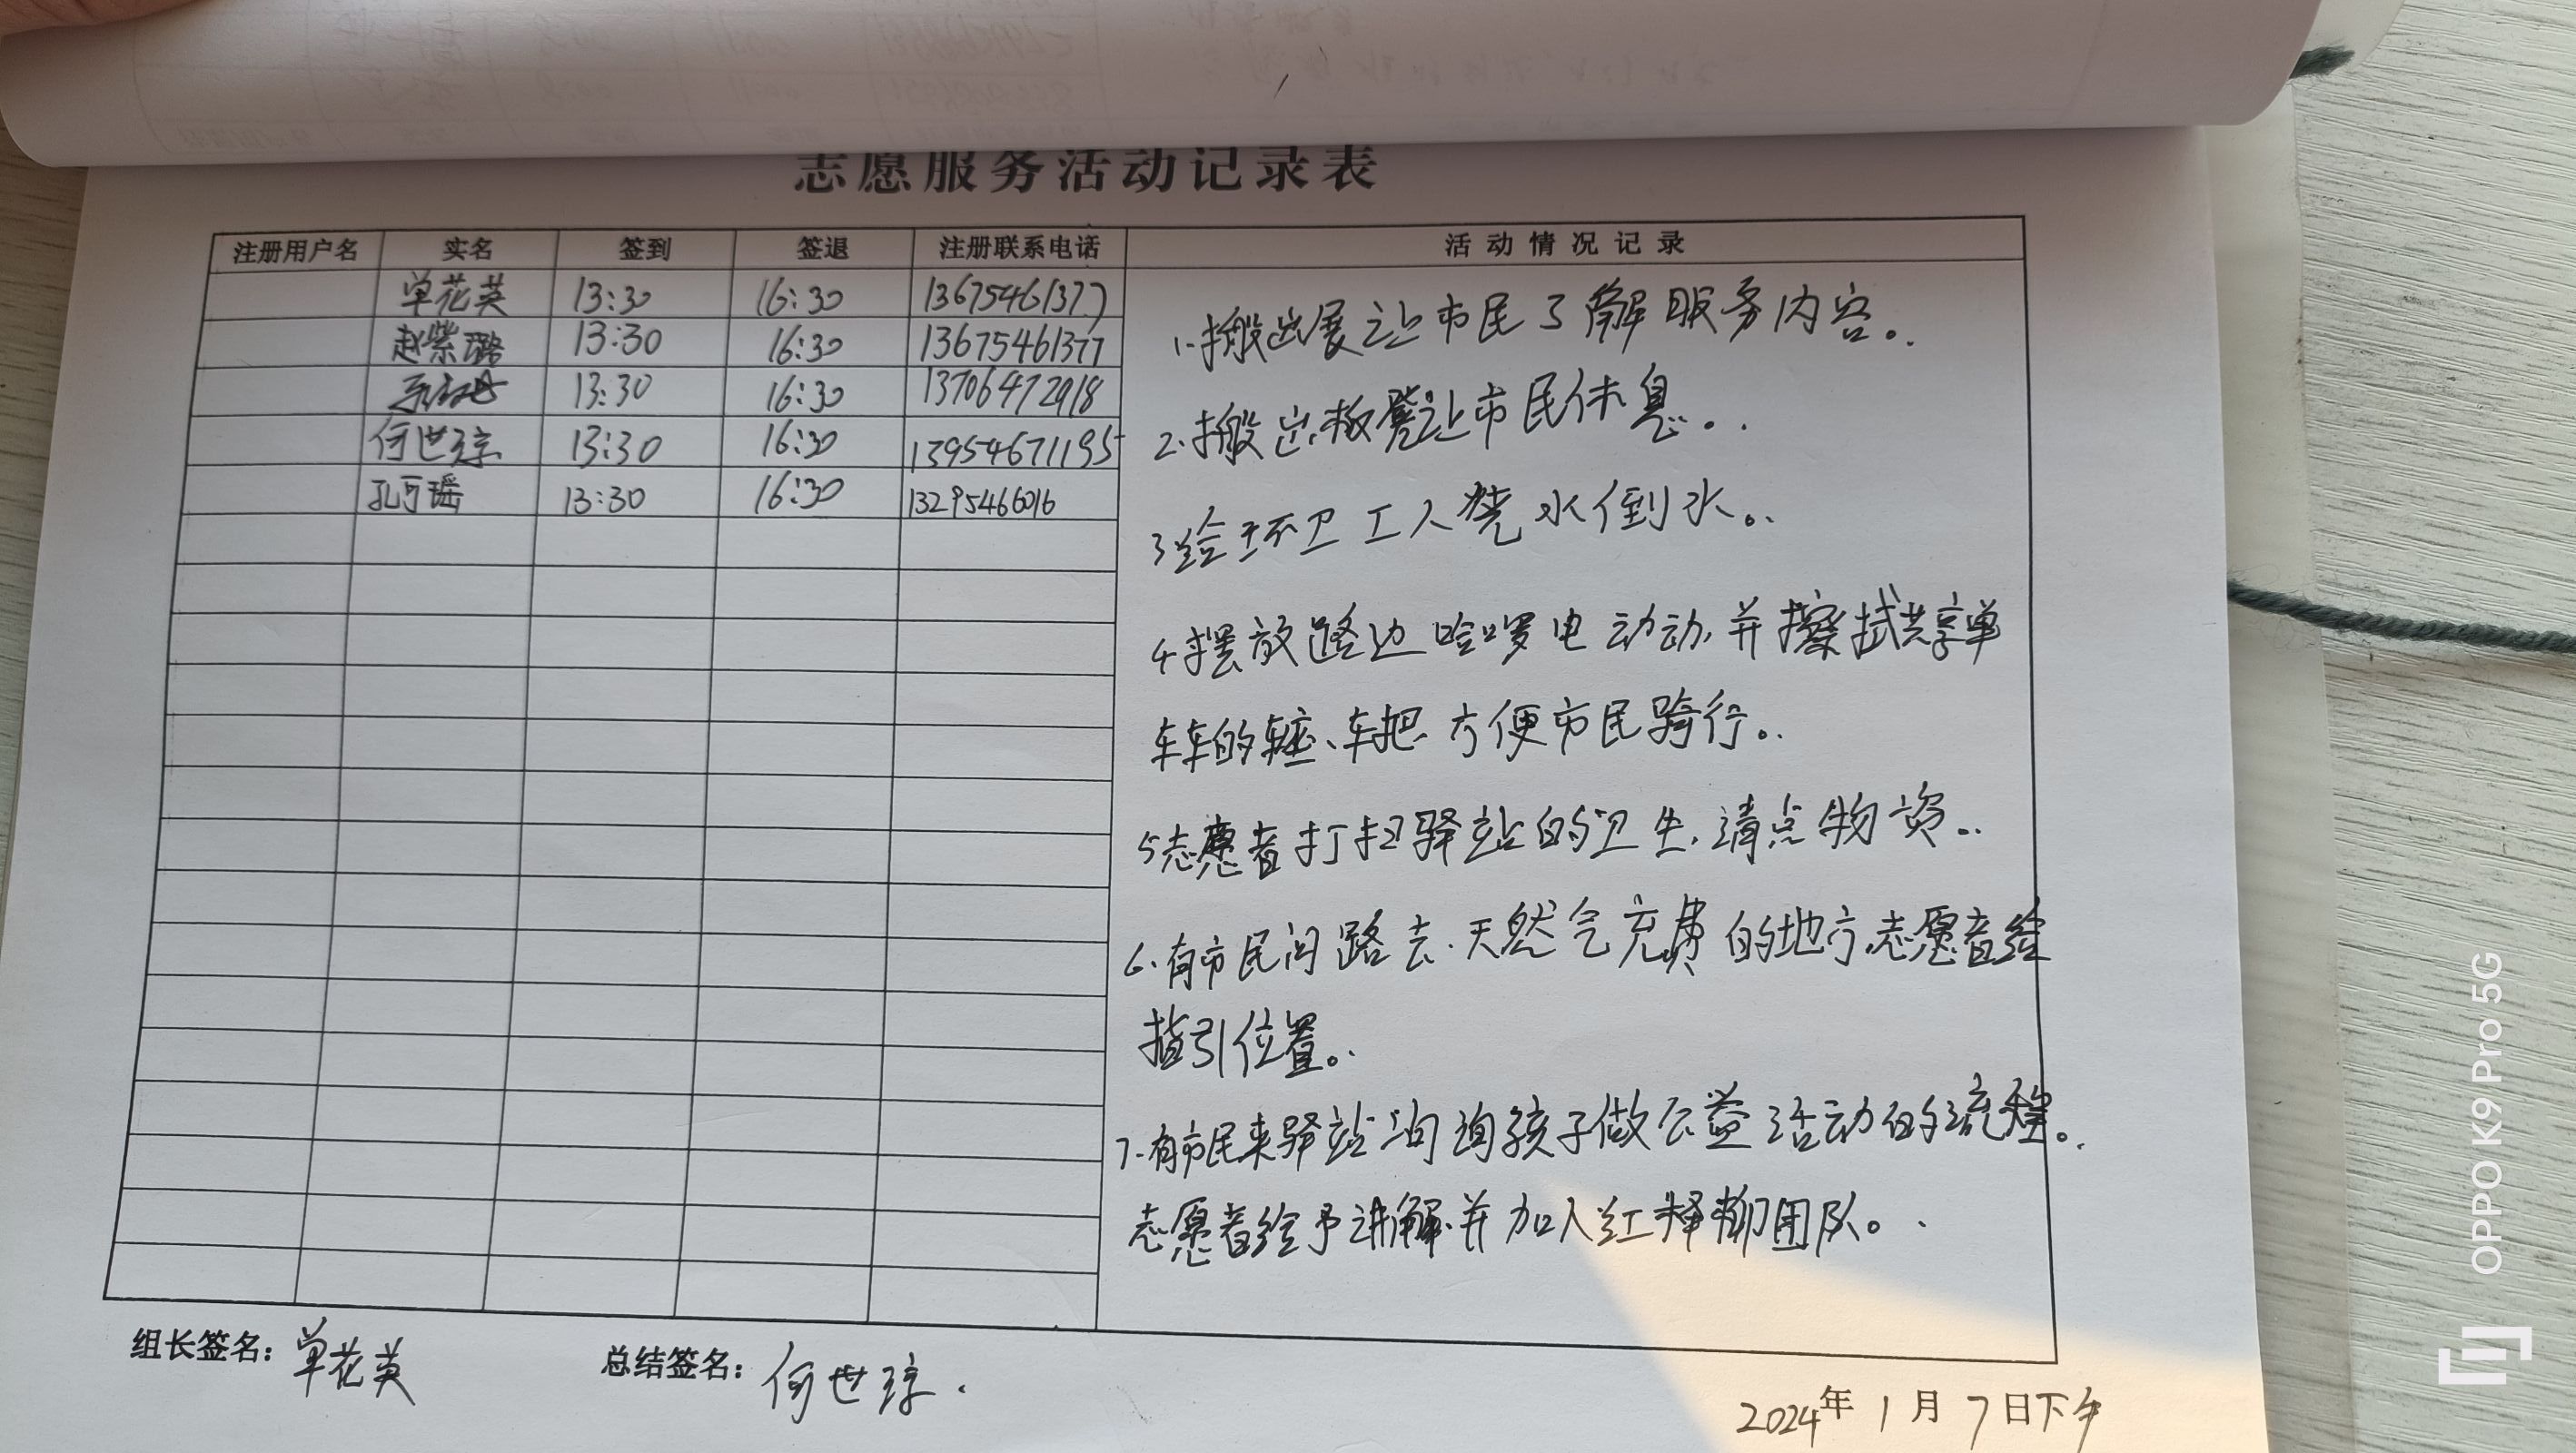 志愿服务活动记录表
注册用户名 实名 签到 签退 注册联系电话 活动情况记录
单花英 13:30 16:30 13675461377
赵紫璐 13:30 16:30 13675461377
13:30 16:30 13706472918
何世琼 13:30 16:30 13954671195
孔可瑶 13:30 16:30 13295466016
1.搬出展让市民了解服务内容。
2.搬出板凳让市民休息。
3给环卫工人烧水倒水。
4摆放路边哈啰电动动,并擦拭共享单
车车的座、车把,方便市民骑行。
5志愿者打扫驿站的卫生,清点物资..
6.有市民问路去.天然气充费的地方,志愿者给
指引位置。
7.有市民来驿站询询孩子做公益活动的流程。
志愿者给予讲解.并加入红柳团队。
组长签名:单花英 总结签名:何世琼.
2024年1月7日下午
OPPO K9 Pro 5G